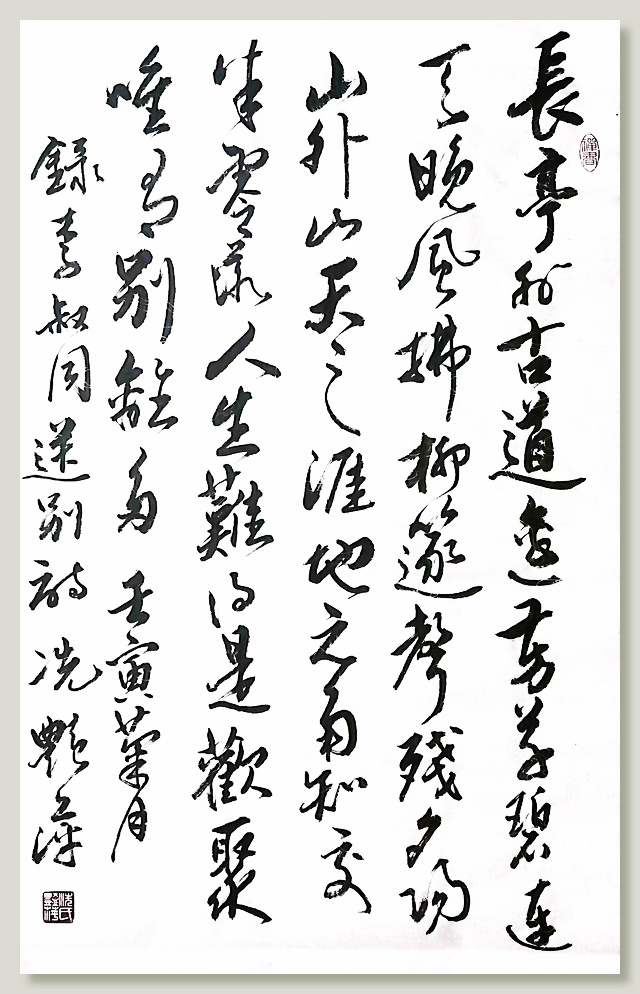 長亭外古道邊芳草碧連
天晚風拂柳笛聲殘夕陽
山外山天之涯地之角知交
半零落人生難得是歡聚
唯有別離多 壬寅菊月
錄李叔同送別詩 冼艷萍